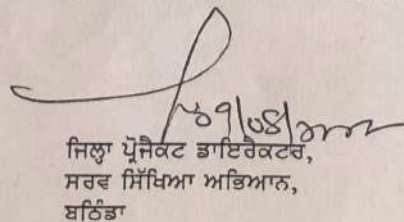 ਜਿਲ੍ਹਾ ਪ੍ਰੋਜੈਕਟ ਡਾਇਰੈਕਟਰ,
ਸਰਵ ਸਿੱਖਿਆ ਅਭਿਆਨ,
ਬਠਿੰਡਾ